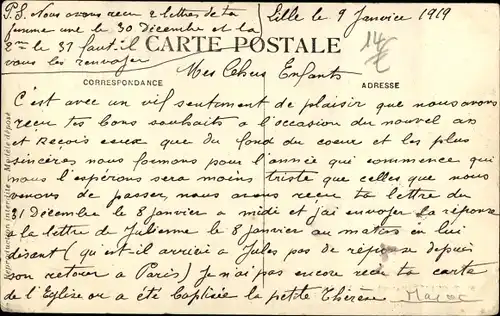 P.S. Nous avons recu 2 lettres de ta
femme une le 30 Décembre et la
2me le 31 faut il
vous les renvoyer
Lille le 9 Janvier 1919
14
€
CARTE POSTALE
Mes Chers Enfants
CORRESPONDANCE
ADRESSE
C'est avec un vif sentument de plaisir que nous avons
recu tes bons souhaits a l'occasion du nouvel an
et Recois ceux que du fond du coeur et les plus
sincères nous formons pour l'année qui commence que
nous l'espérons sera moins triste que celles que nous
venons de passer, nous avons recu ta lettre du
31 Décembre le 8 janvier a midi et j'ai envoyer la réponse
a la lettre de Julienne le 8 Janvier au matin en lui
disant (qu'est-il arrivé a Jules pas de réponse depuis
son retour a Paris) Je n'ai pas encore recu ta carte
de l'Eglise ou a été baptisée la petite Thérèse
Reproduction interdite - Modèle déposé